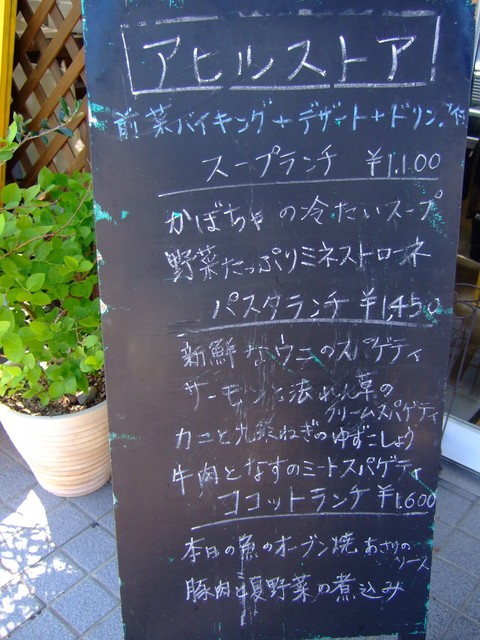 アヒルストア
前菜バイキング+デザート+ドリンク付
スープランチ ¥1,100
かぼちゃの冷たいスープ
野菜たっぷりミネストローネ
パスタランチ ¥1,450
新鮮なウニのスパゲティ
サーモンと法れん草の
クリームスパゲティ
カニと九条ねぎのゆずこしょう
牛肉となすのミートスパゲティ
ココットランチ ¥1,600
本日の魚のオーブン焼 あさりの
ソース
豚肉と夏野菜の煮込み